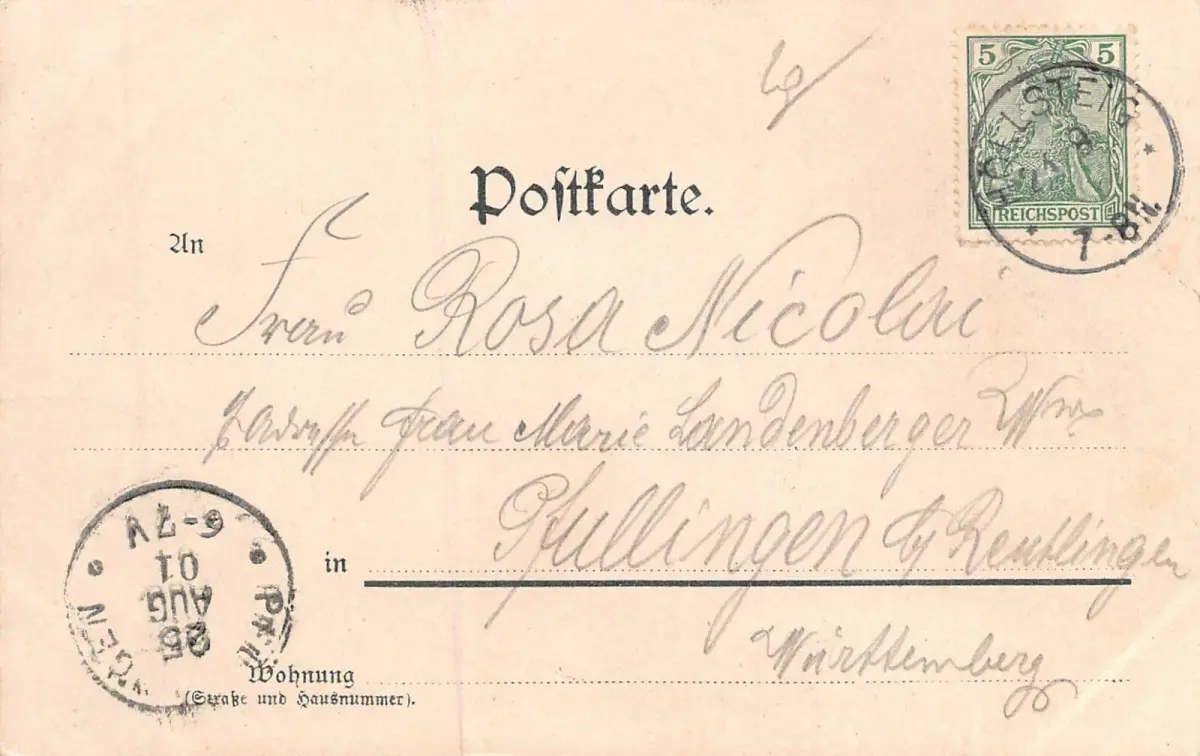 5 5
REICHSPOST
7-8N.
Postkarte.
An
Frau Rosa Nicolai
Adresse Frau Marie Landenberger Wwe
in Pfullingen b/ Reutlingen
Württemberg
Wohnung
(Straße und Hausnummer).
6-7V
01
AUG
25